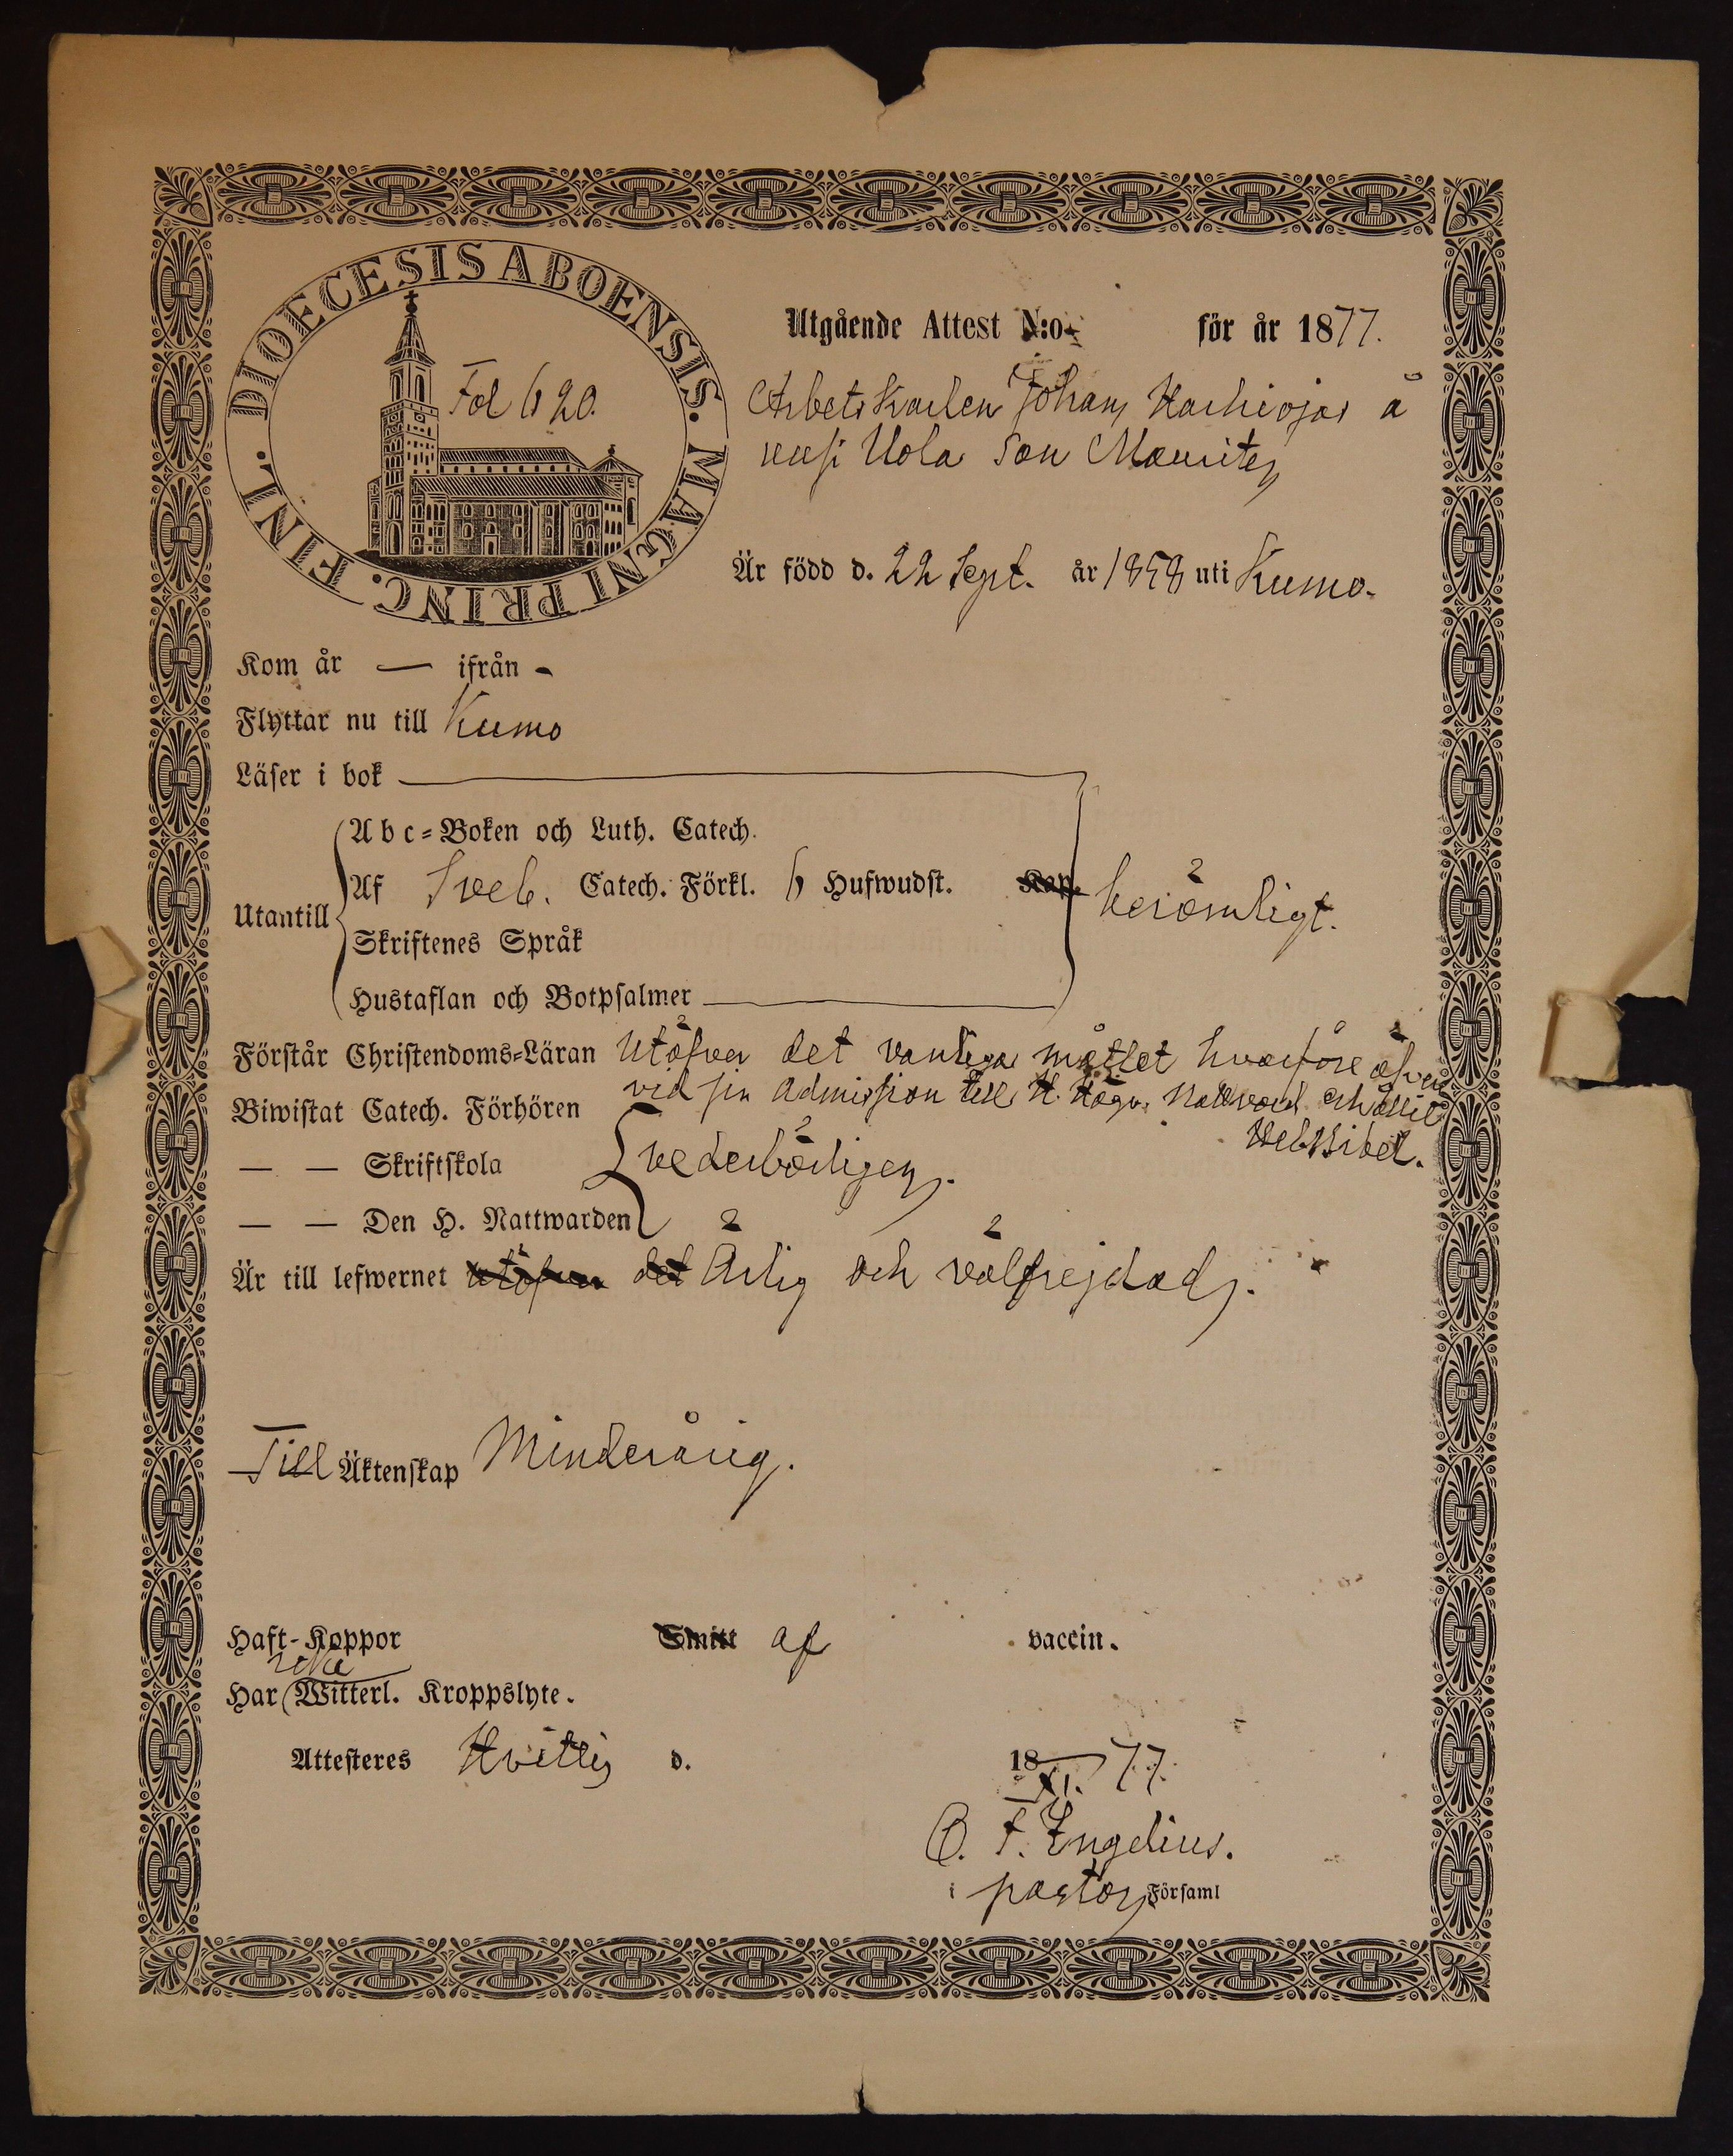 DIOECESIS ABOENSIS. MAGNI PRINC. FINL.
Fol 620.
Utgående Attest N:o för år 1877.
Arbetskarlen Johan Harhiojas å
uusi Uola son Maurits
Är född d. 22 Sept. år 1858 uti Kumo.
Kom år — ifrån -
Flyttar nu till Kumo
Läser i bok
Utantill
Abc=Boken och Luth. Catech.
Af Sveb. Catech. Förkl. 6 Hufwudst. Kap.
berömligt.
Skriftenes Språk
Hustaflan och Botpsalmer
Förstår Christendoms=Läran utöfver det vanliga måttet hvarföre äfven
vid sin admission till H. Högv. Nattvard erhållit
Biwistat Catech. Förhören
Helbibel.
— — Skriftskola vederbörligen.
— — Den H. Nattwarden
Är till lefwernet utöfver det Ärlig och välfrejdad.
Till Äktenskap Minderårig.
Haft-Koppor Smitt af vaccin.
icke
Har Witterl. Kroppslyte.
Attesteres Hvittis d. 18 XI. 77.
O. F. Engelius.
i pastor Församl